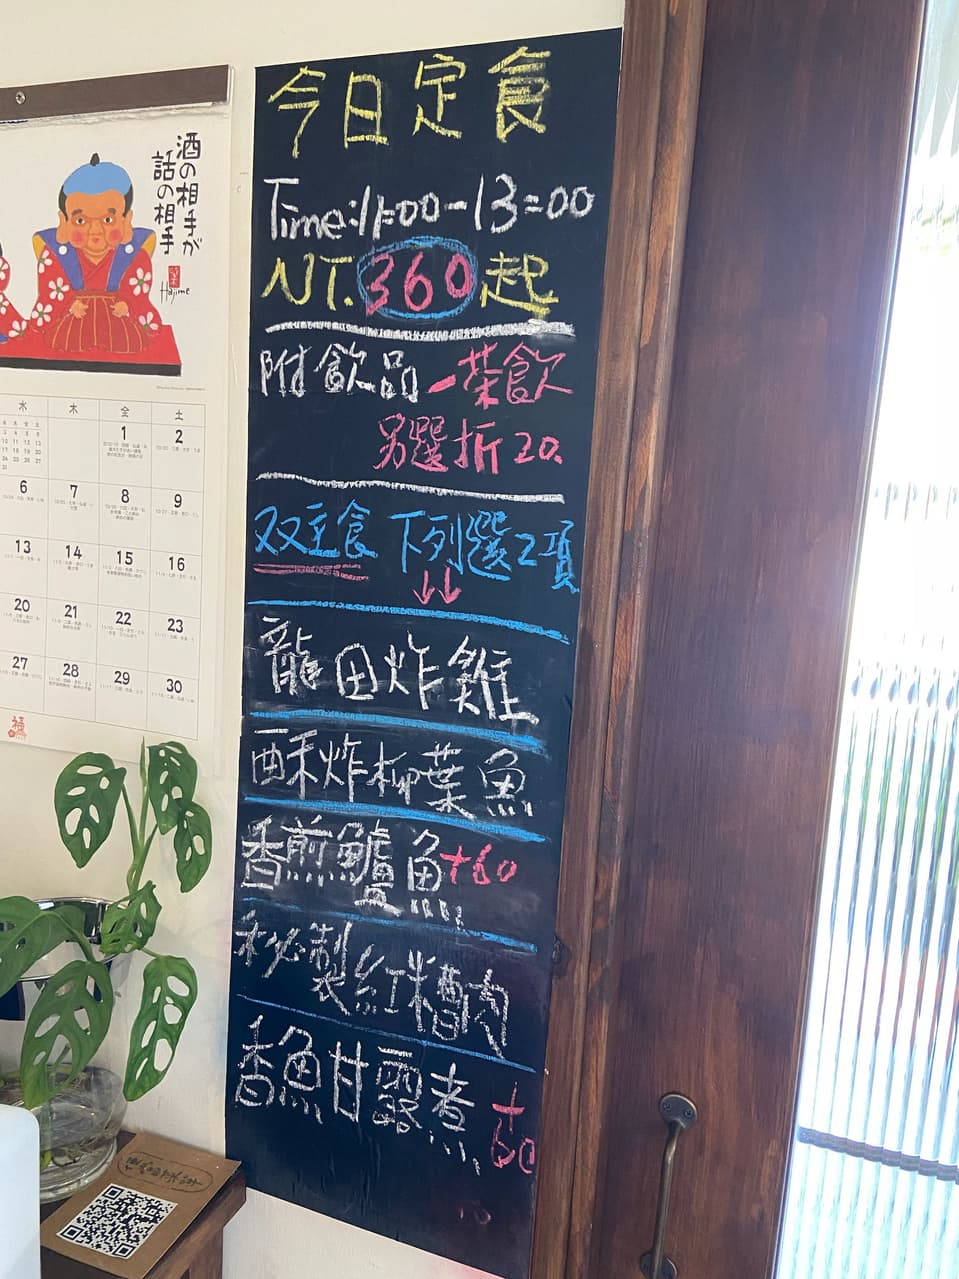 今日定食
Time:11:00-13:00
NT.360起
附飲品-茶飲
另選折20.
双主食 下列選2項
↓↓
龍田炸雞
酥炸柳葉魚
香煎鱸魚+60
秘製紅糟肉
香魚甘露煮+60
酒の相手が
話の相手
Hajime
水 木 金 土
1 2
6 7 8 9
13 14 15 16
20 21 22 23
27 28 29 30